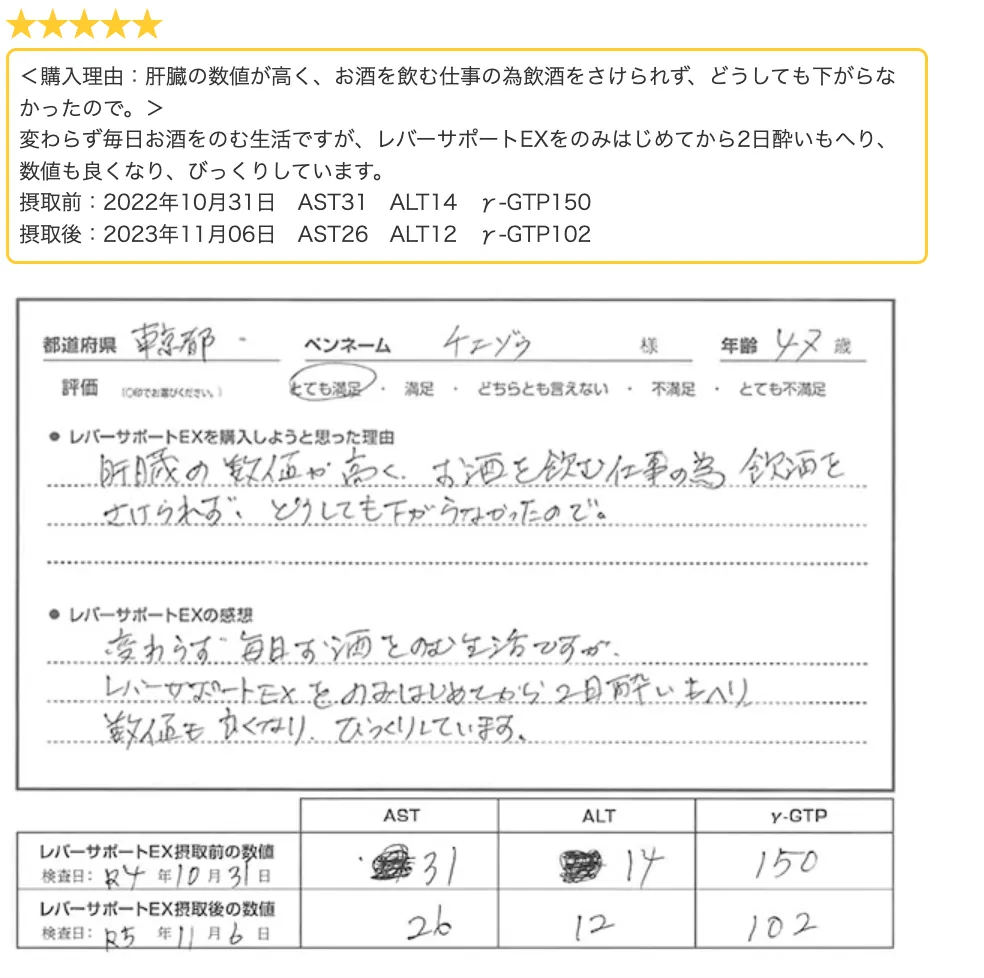 ★★★★★
＜購入理由：肝臓の数値が高く、お酒を飲む仕事の為飲酒をさけられず、どうしても下がらな
かったので。＞
変わらず毎日お酒をのむ生活ですが、レバーサポートEXをのみはじめてから2日酔いもへり、
数値も良くなり、びっくりしています。
摂取前：2022年10月31日　AST31　ALT14　γ-GTP150
摂取後：2023年11月06日　AST26　ALT12　γ-GTP102
都道府県 東京都 ペンネーム ケエゾウ 様 年齢 歳
評価 （○印でお選びください。） とても満足 ・ 満足 ・ どちらとも言えない ・ 不満足 ・ とても不満足
● レバーサポートEXを購入しようと思った理由
肝臓の数値が高く、お酒を飲む仕事の為 飲酒を
さけられず、どうしても下がらなかったので。
● レバーサポートEXの感想
変わらず毎日お酒をのむ生活ですが、
レバーサポートEXをのみはじめてから2日酔いもへり
数値も良くなり、びっくりしています。
AST ALT γ-GTP
レバーサポートEX摂取前の数値
検査日： R4 年 10 月 31 日 31 14 150
レバーサポートEX摂取後の数値
検査日： R5 年 11 月 6 日 26 12 102